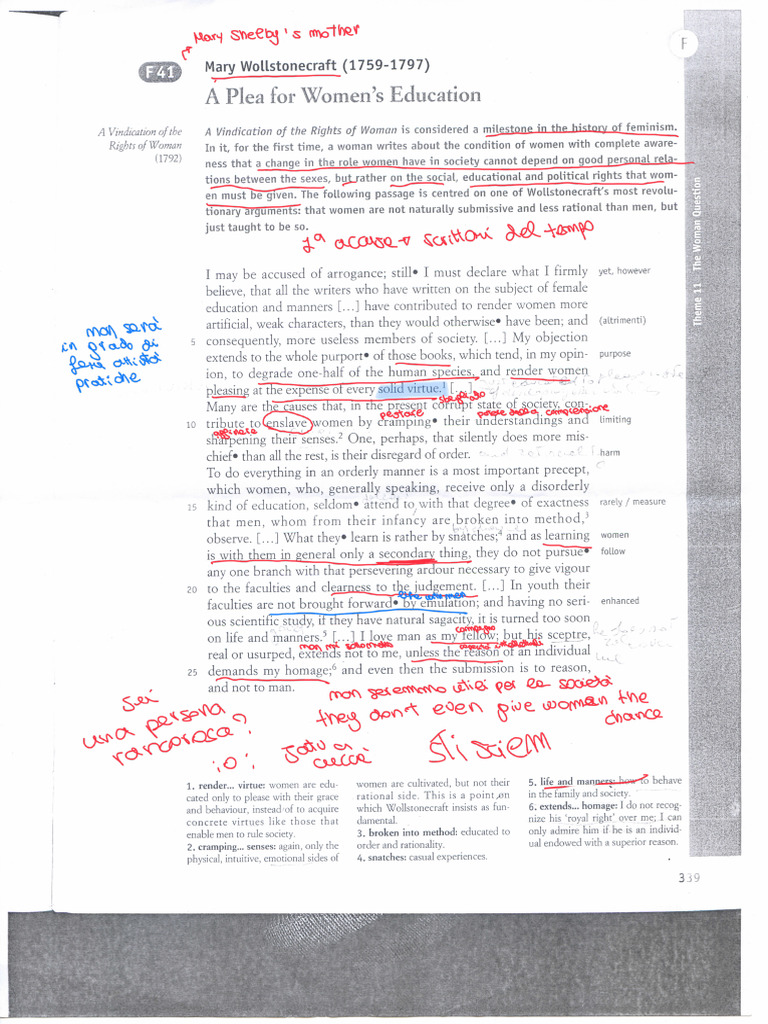 Mary Shelby's mother
F
F41
Mary Wollstonecraft (1759-1797)
A Plea for Women's Education
A Vindication of the
Rights of Woman
(1792)
A Vindication of the Rights of Woman is considered a milestone in the history of feminism.
In it, for the first time, a woman writes about the condition of women with complete aware-
ness that a change in the role women have in society cannot depend on good personal rela-
tions between the sexes, but rather on the social, educational and political rights that wom-
en must be given. The following passage is centred on one of Wollstonecraft's most revolu-
tionary arguments: that women are not naturally submissive and less rational than men, but
just taught to be so.
1ª accusa → scrittori del tempo
Theme 11 The Woman Question
I may be accused of arrogance; still• I must declare what I firmly
yet, however
believe, that all the writers who have written on the subject of female
education and manners [...] have contributed to render women more
artificial, weak characters, than they would otherwise• have been; and
(altrimenti)
5 consequently, more useless members of society. [...] My objection
extends to the whole purport• of those books, which tend, in my opin-
purpose
ion, to degrade one-half of the human species, and render women
pleasing at the expense of every solid virtue.¹ [...]
non sarà
in grado di
fare attività
pratiche
Many are the causes that, in the present corrupt state of society, con-
10 tribute to enslave women by cramping• their understandings and
limiting
comprensione
sharpening their senses.² One, perhaps, that silently does more mis-
chief• than all the rest, is their disregard of order.
harm
To do everything in an orderly manner is a most important precept,
which women, who, generally speaking, receive only a disorderly
15 kind of education, seldom• attend to with that degree• of exactness
rarely / measure
that men, whom from their infancy are broken into method,³
observe. [...] What they• learn is rather by snatches;⁴ and as learning
women
is with them in general only a secondary thing, they do not pursue•
follow
any one branch with that persevering ardour necessary to give vigour
20 to the faculties and clearness to the judgement. [...] In youth their
faculties are not brought forward• by emulation; and having no seri-
enhanced
ous scientific study, if they have natural sagacity, it is turned too soon
on life and manners.⁵ [...] I love man as my fellow; but his sceptre,
compagno
real or usurped, extends not to me, unless the reason of an individual
25 demands my homage;⁶ and even then the submission is to reason,
and not to man.
non saremmo utili per la società
they don't even give woman the
chance
Sei
una persona
rancorosa?
io:
1. render... virtue: women are edu-
cated only to please with their grace
and behaviour, instead of to acquire
concrete virtues like those that
enable men to rule society.
2. cramping... senses: again, only the
physical, intuitive, emotional sides of
women are cultivated, but not their
rational side. This is a point on
which Wollstonecraft insists as fun-
damental.
3. broken into method: educated to
order and rationality.
4. snatches: casual experiences.
5. life and manners: how to behave
in the family and society.
6. extends... homage: I do not recog-
nize his 'royal right' over me; I can
only admire him if he is an individ-
ual endowed with a superior reason.
339